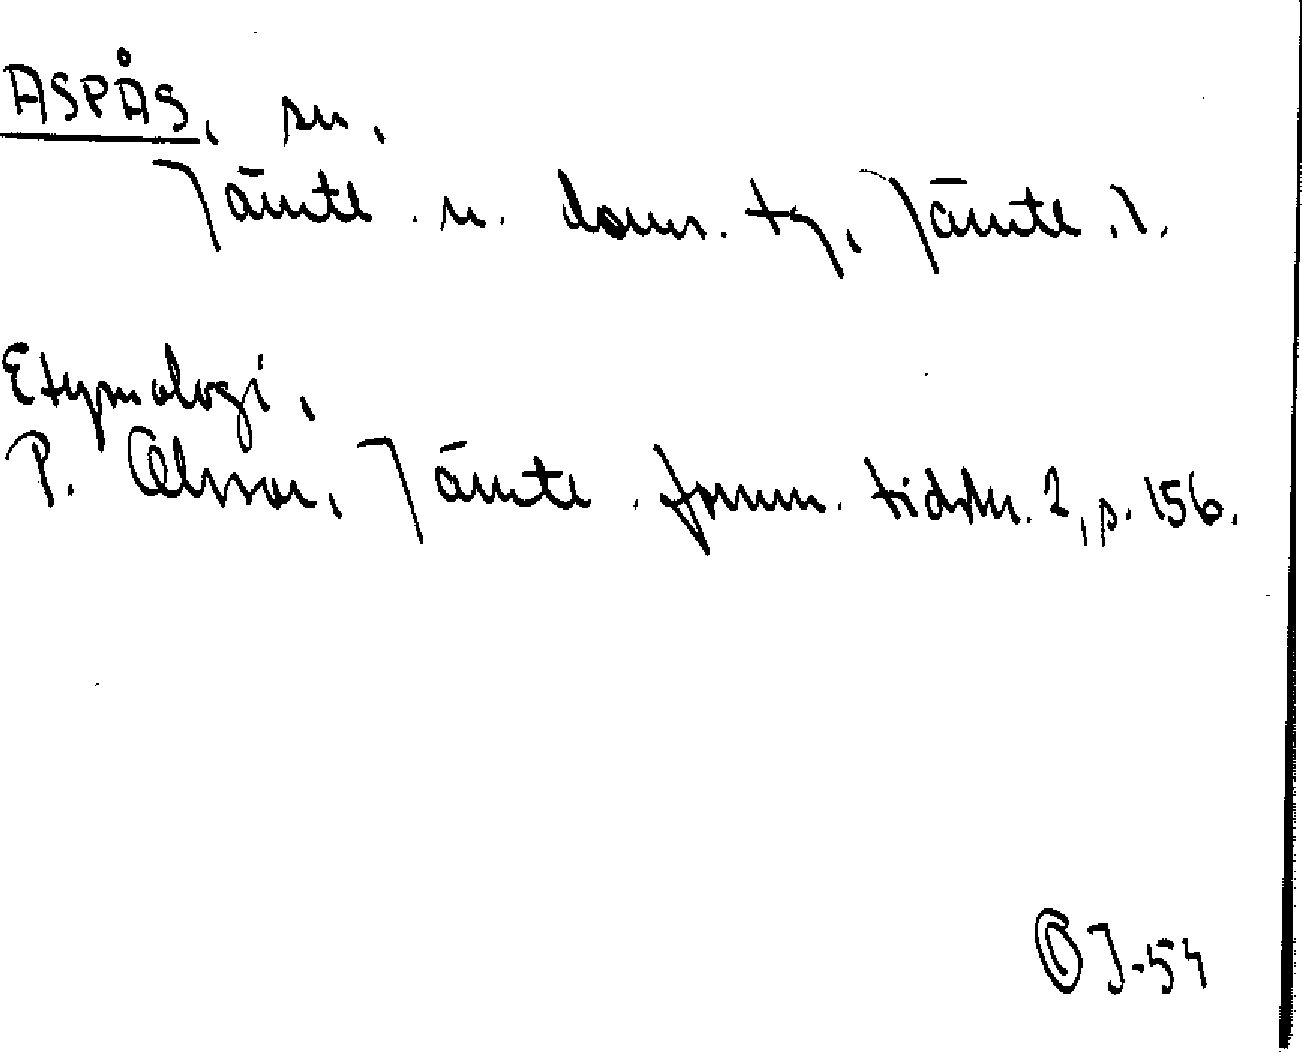 ASPÅS, sn,
Jämtl. n. doms. tg, Jämtl. l.
Etymologi,
P. Olsson, Jämtl. fornm. tidskr. 2, s. 156.
OJ-54